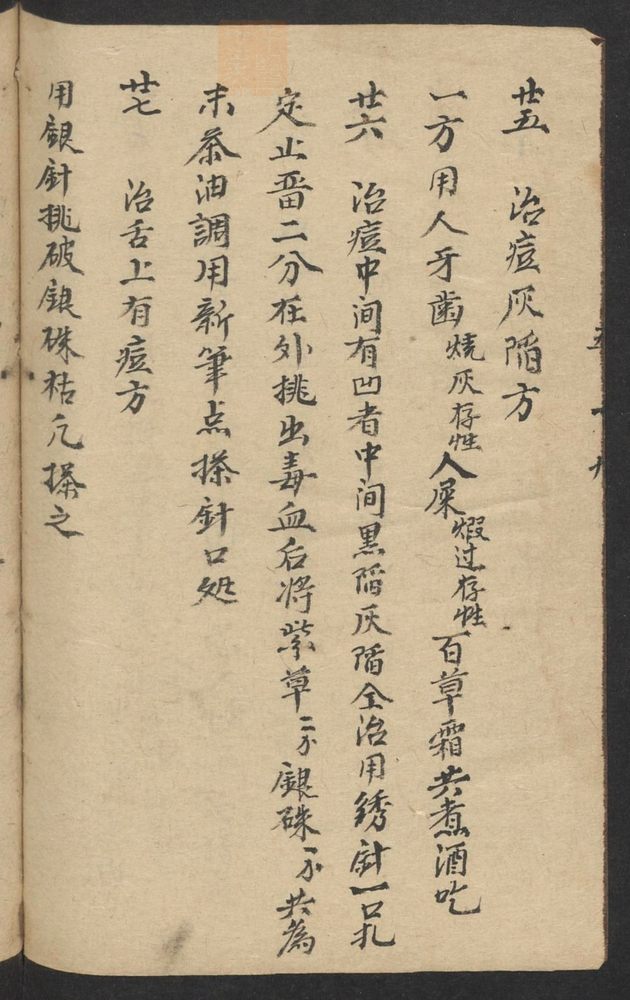 廿五　治痘灰陷方
一方用人牙齒燒灰存性人屎煆过存性百草霜共煮酒吃
廿六　治痘中间有凹者中间黑陷灰陷全治用綉針一口扎
定止畨二分在外挑出毒血后将紫草二分銀硃一分共為
末茶油調用新筆点搽針口处
廿七　治舌上有痘方
用銀針挑破銀硃枯凡搽之